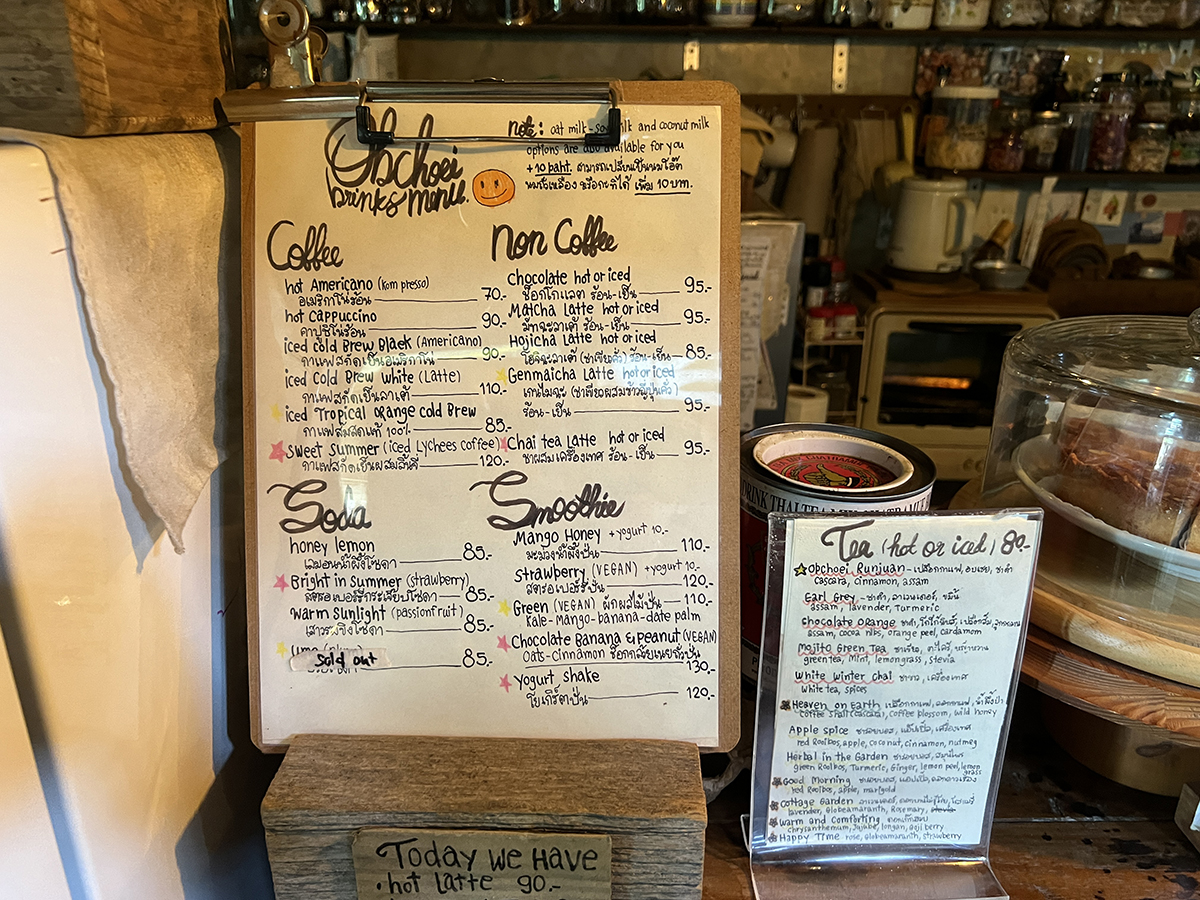 Obchoei
Drinks menu.
note: oat milk-soy milk and coconut milk
options are also available for you
+ 10 baht. สามารถเปลี่ยนเป็นนมโอ๊ต
นมถั่วเหลือง หรือกะทิได้ เพิ่ม 10 บาท.
Coffee
hot Americano (kom presso)
อเมริกาโน่ร้อน 70.-
hot cappuccino
คาปูชิโน่ร้อน 90.-
iced cold Brew Black (Americano)
กาแฟสกัดเย็นอเมริกาโน่ 90.-
iced cold Brew white (Latte)
กาแฟสกัดเย็นลาเต้ 110.-
iced Tropical orange cold Brew
กาแฟส้มสดแท้ 100% 85.-
Sweet Summer (iced Lychees coffee)
กาแฟสกัดเย็นผสมลิ้นจี่ 120.-
Non Coffee
Chocolate hot or iced
ช็อกโกแลต ร้อน-เย็น 95.-
Matcha Latte hot or iced
มัทฉะลาเต้ ร้อน-เย็น 95.-
Hojicha Latte hot or iced
โฮจิฉะลาเต้ (ชาเขียวคั่ว) ร้อน-เย็น 85.-
Genmaicha Latte hot or iced
เกนไมฉะ (ชาเขียวผสมข้าวญี่ปุ่นคั่ว)
ร้อน-เย็น 95.-
Chai tea Latte hot or iced
ชาผสมเครื่องเทศ ร้อน-เย็น 95.-
Soda
honey lemon
เลมอนน้ำผึ้งโซดา 85.-
Bright in summer (strawberry)
สตรอเบอร์รี่กระเจี๊ยบโซดา 85.-
Warm Sunlight (passionfruit)
เสาวรสขิงโซดา 85.-
Sold out
85.-
Smoothie
Mango Honey + yogurt 10.-
มะม่วงน้ำผึ้งปั่น 110.-
Strawberry (VEGAN) + yogurt 10.-
สตรอเบอร์รี่ปั่น 120.-
Green (VEGAN) ผักผลไม้ปั่น 110.-
Kale-Mango-banana-date palm
Chocolate Banana & Peanut (VEGAN)
Oats-Cinnamon ช็อกกล้วยเนยถั่วปั่น
130.-
Yogurt shake
โยเกิร์ตปั่น 120.-
Today we Have
• hot Latte 90.-
DRINK THAI TEA
Tea (hot or iced) 80.-
Obchoei Runjuan - เปลือกกาแฟ, อบเชย, ชาดำ
cascara, cinnamon, assam
Earl Grey - ชาดำ, ลาเวนเดอร์, ขมิ้น
assam, lavender, Turmeric
Chocolate orange
assam, cocoa nibs, orange peel, cardamom
Mojito Green Tea ชาเขียว, ตะไคร้, หญ้าหวาน
green tea, Mint, lemongrass, stevia
White winter chai ชาขาว, เครื่องเทศ
white tea, spices
Heaven on Earth เปลือกกาแฟ, ดอกกาแฟ, น้ำผึ้งป่า
coffee shall (cascara), coffee blossom, wild honey
Apple spice
red Rooibos, apple, coconut, cinnamon, nutmeg
Herbal in the Garden
green Rooibos, Turmeric, Ginger, lemon peel, lemon grass
Good Morning
red Rooibos, apple, marigold
Cottage Garden
lavender, Globeamaranth, Rosemary, stevia
Warm and comforting
chrysanthemum, Jujube, longan, goji berry
Happy Time rose, globeamaranth, strawberry